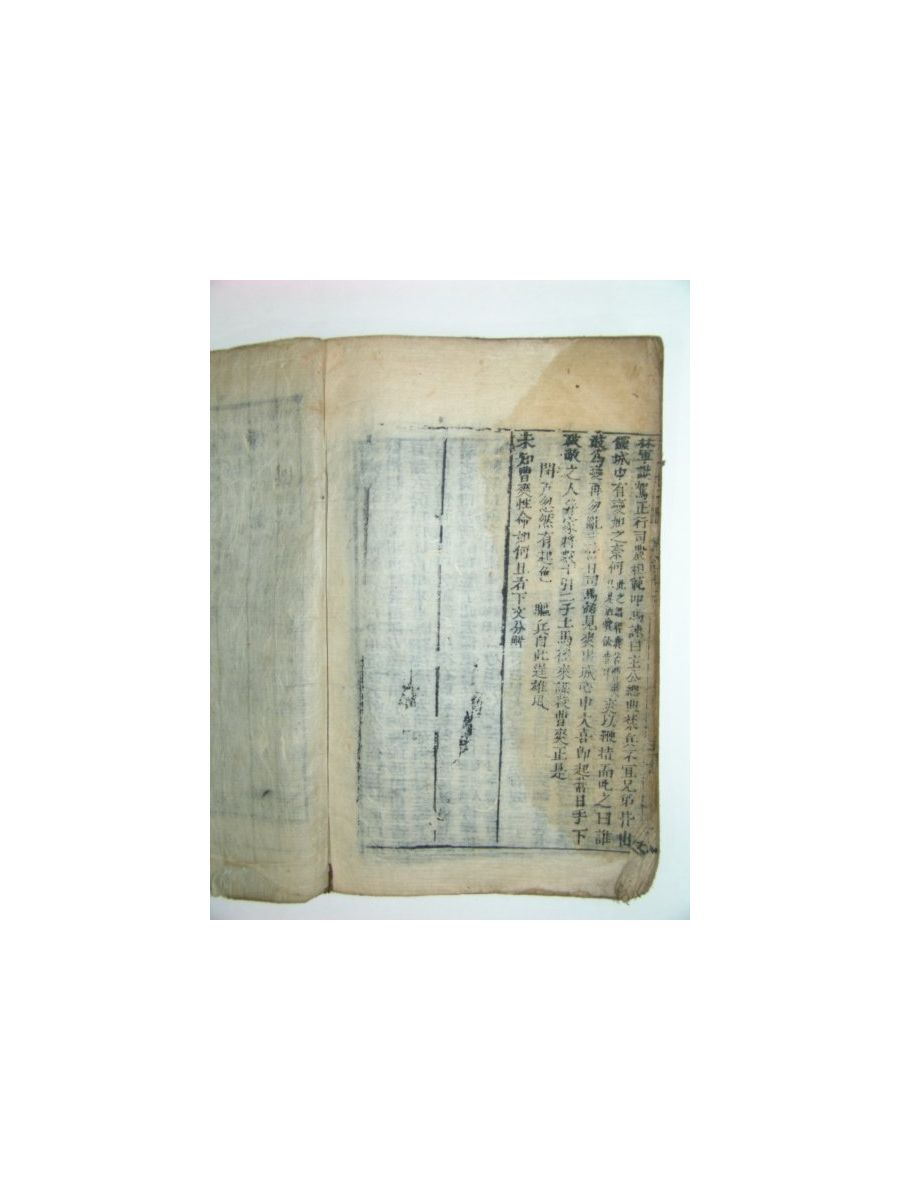 禁軍護駕正行司農桓範叩馬諫曰主公總典禁兵不宜兄弟皆出
城中有變如之奈何 爽以鞭指而叱之曰誰
敢為變再勿亂言當日司馬懿見爽出城心中大喜即起舊日手下
破敵之人并家將數十引二子上馬徑來謀殺曹爽正是
閉戶忽然有起色 驅兵自此逞雄風
未知曹爽性命如何且看下文分解